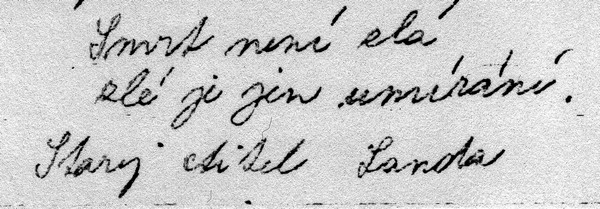 Smrt není zlá
zlé je jen umírání.
Starý ctitel Landa